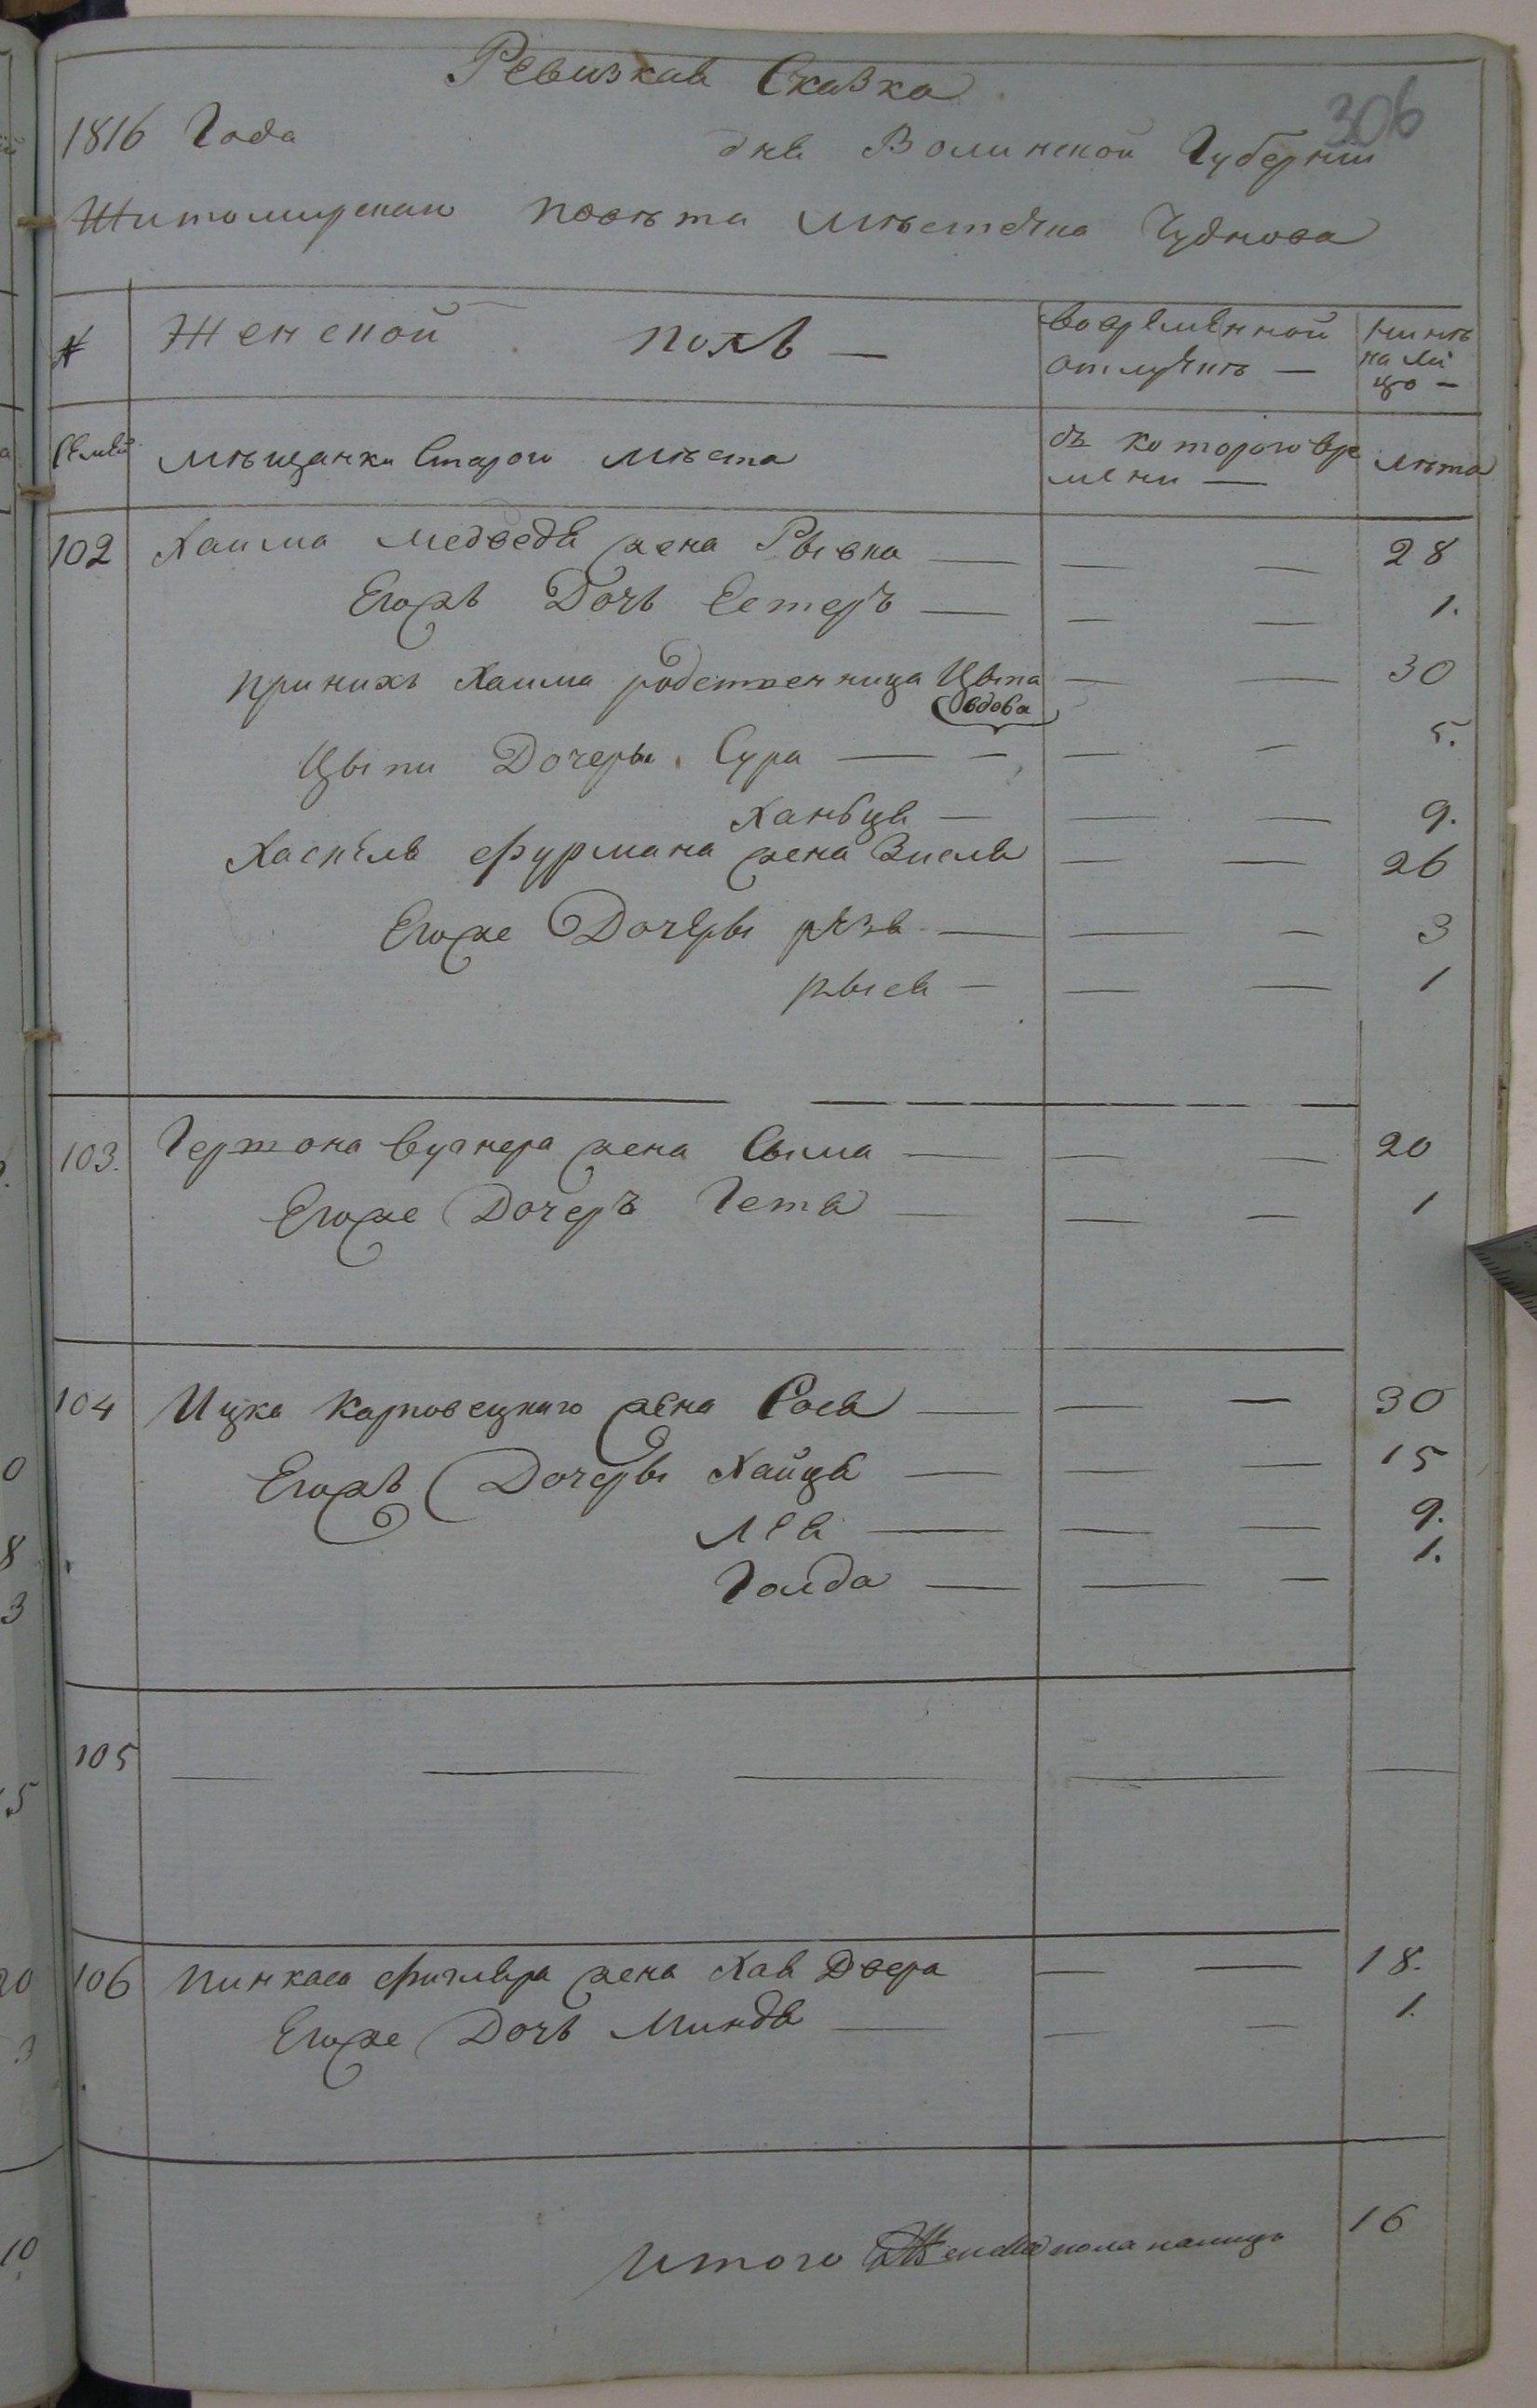 Ревизкая Сказка
306
1816 Года дня Волинской Губернии
Житомирскаго повѣта мѣстечка Чуднова
№ Женской полъ — Во времѣнной отлучкѣ — Нинѣ на лицо —
Семей мѣщанки Старого мѣста съ которого времени — лѣта
102 Хаима медведя жена Рывка — — — 28
Егожъ Дочь Естеръ — — — 1.
при нихъ Хаима родственница Цыпа — — 30
вдова
Цыпи Дочеры Сура — — — — 5.
Ханьця — — — 9.
Хаскѣля фурмана жена Зисля — — 26
Егоже Дочѣры рѣзя — — — 3
рыся — — — 1
103. Гершона Вугнера жена Сыма — — — 20
Егоже Дочеръ Гетя — — — 1
104 Ицка Карповецкого жена Рося — — — 30
Егожъ Дочеры Хайця — — — 15
Лея — — — 9.
Голда — — — 1.
105 — — — — —
106 Пинкаса фиглѣра жена Хая Двера — — 18.
Егоже Дочь Миндя — — — 1.
Итого Женска пола налицо 16